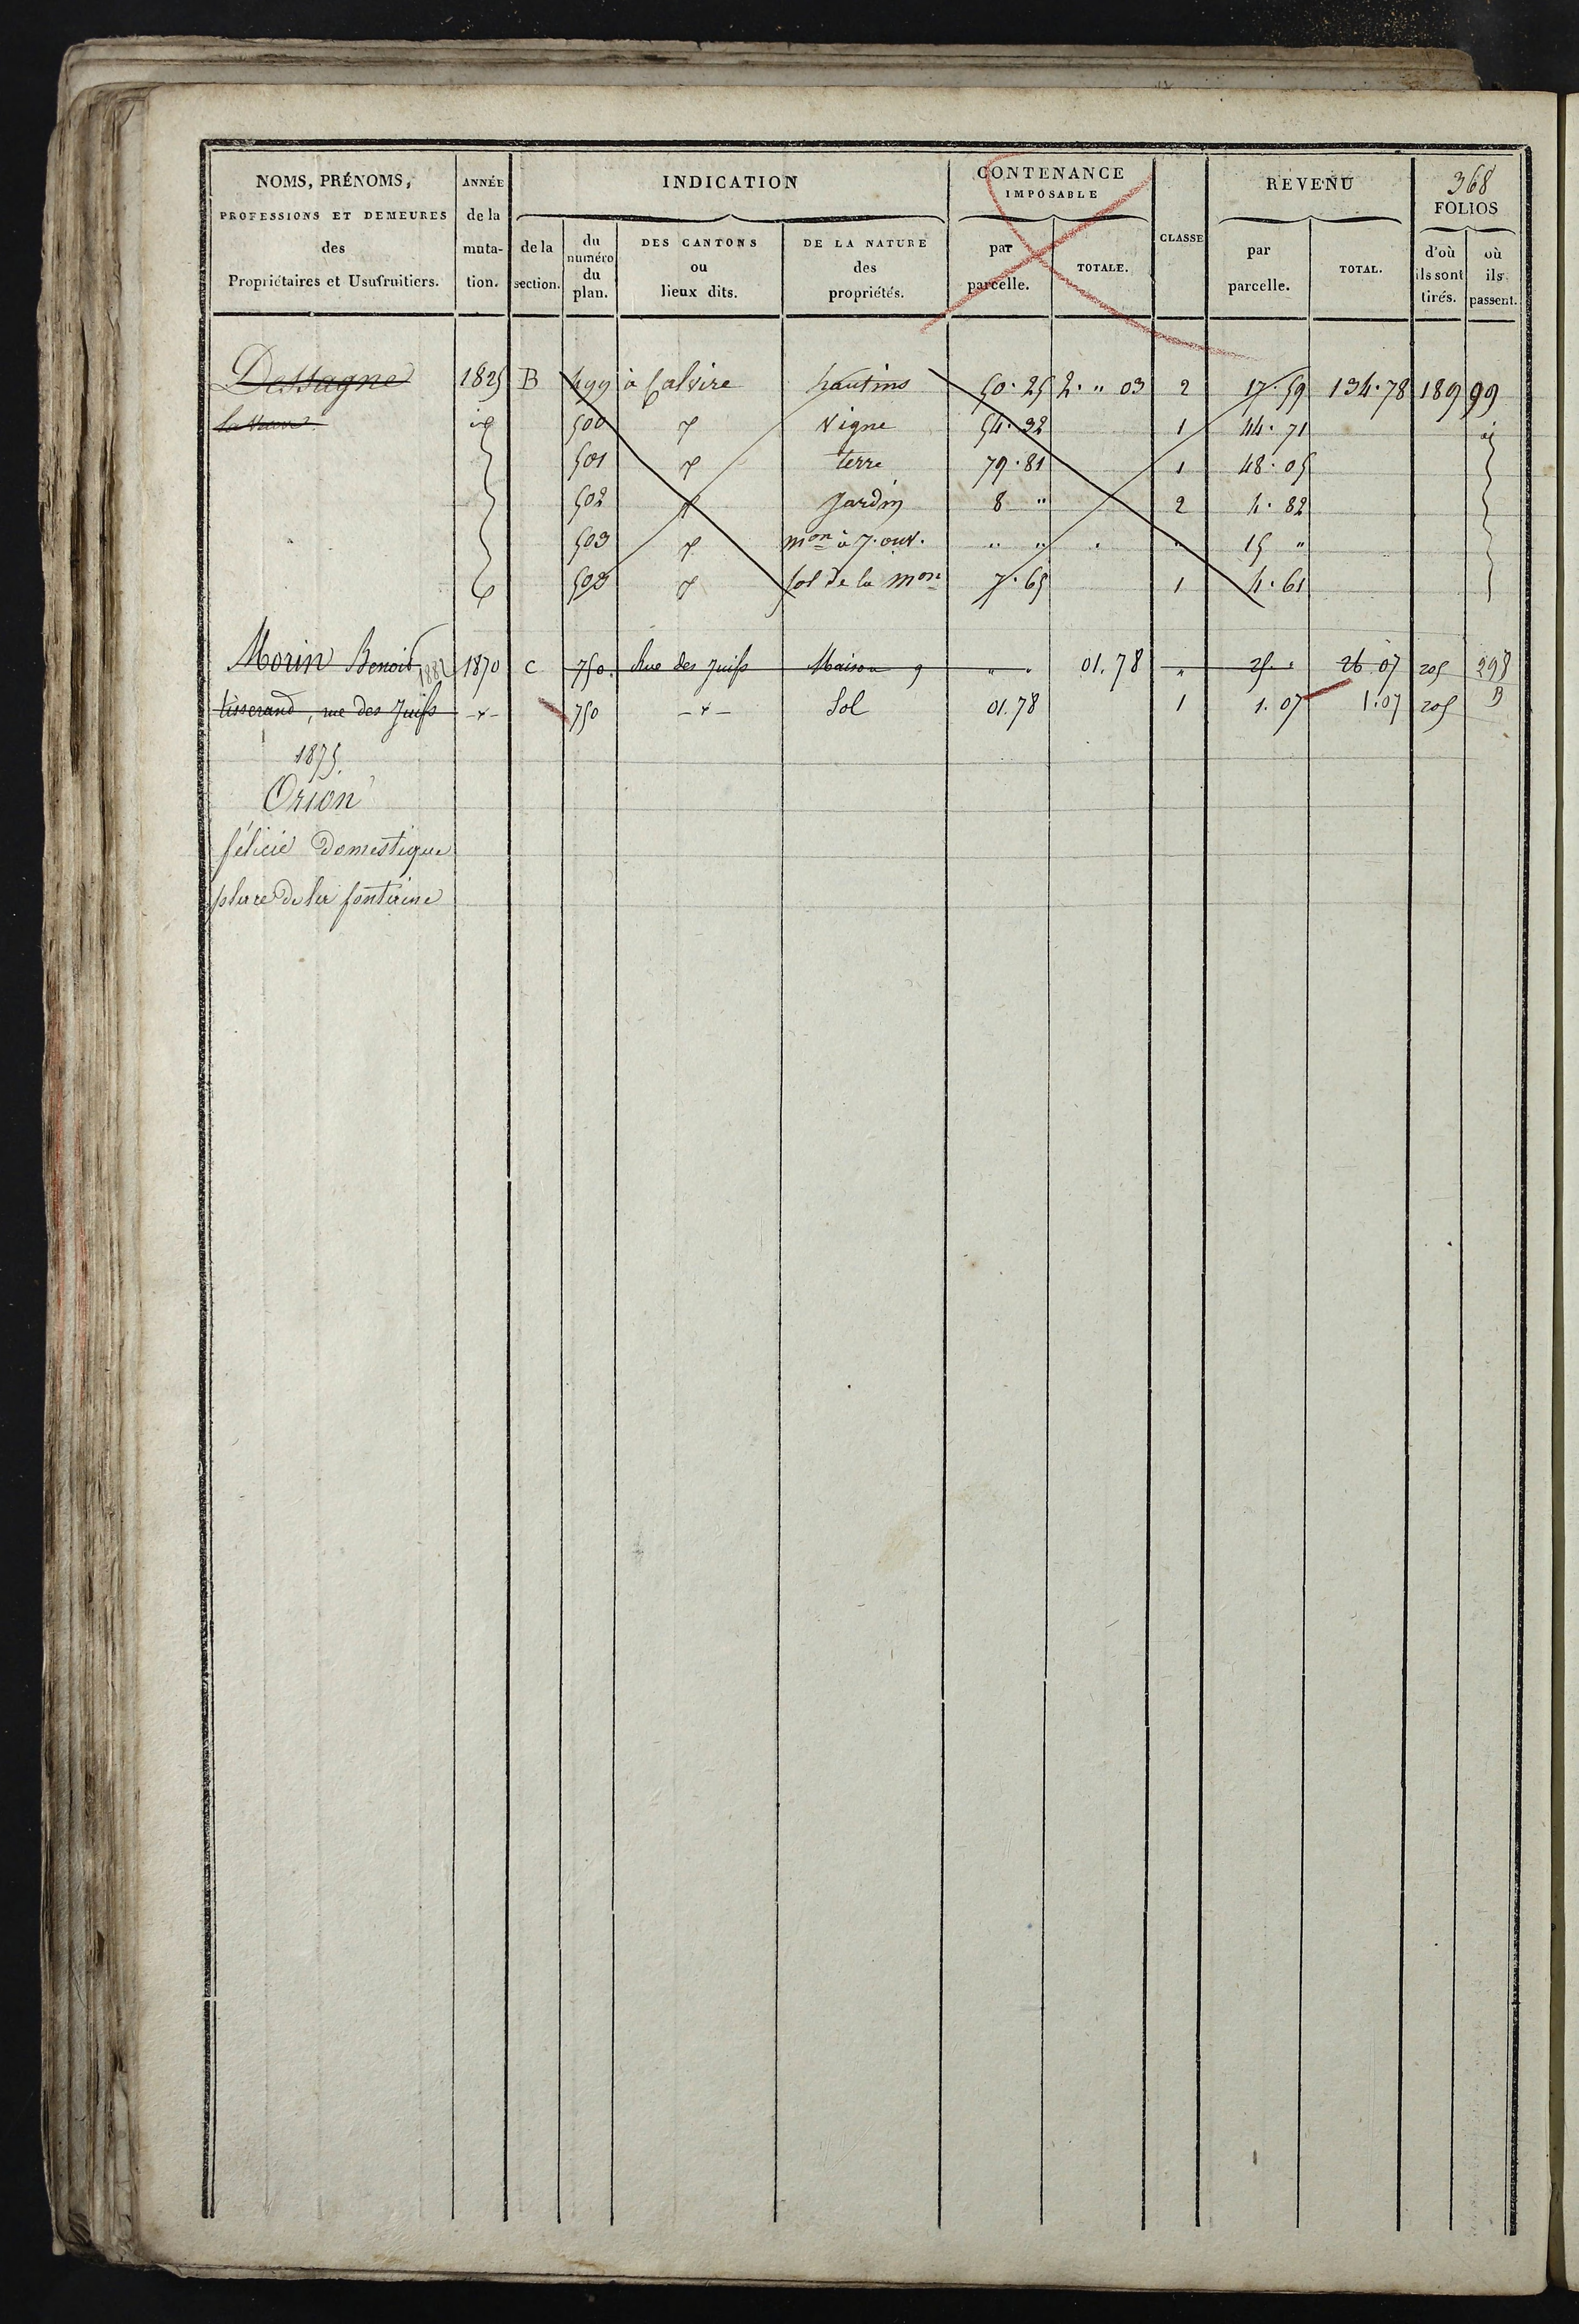 368
NOMS, PRÉNOMS, PROFESSIONS ET DEMEURES des Propriétaires et Usufruitiers.
ANNÉE de la muta- tion.
INDICATION
de la section.
du numéro du plan.
DES CANTONS ou lieux dits.
DE LA NATURE des propriétés.
CONTENANCE IMPOSABLE
par parcelle.
TOTALE.
CLASSE
REVENU
par parcelle.
TOTAL.
FOLIOS
d'où ils sont tirés.
où ils passent.
Dessagne 1825 B 499 à Calvire hautins 50.25 2. " 03 2 17.59 134.78 189 99
id 500 vigne 54.32 1 44.71 id
501 terre 79.81 1 48.05
502 jardin 8 " 2 4.82
503 mon à 7. ouv. " " " 15 "
503 sol de la mon 7.65 1 4.61
Morin Benoit 1882 1870 C 750. Rue des Juifs Maison 9 " . 01.78 " 25. " 26 07 205 298
tisserand, rue des Juifs -"- 750 -"- Sol 01.78 1 1.07 1.07 205
1875
Orion
félicie domestique
place de la fontaine